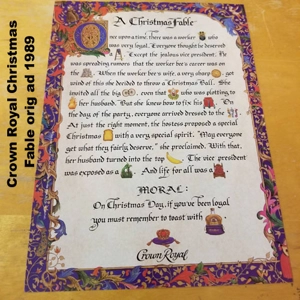 Crown Royal Christmas
Fable orig ad 1989
A Christmas Fable
Once upon a time, there was a worker who
was very loyal. Everyone thought he deserved
Except the jealous vice president. He
was spreading rumors that the worker bee's career was on
the. When the worker bee's wife, a very sharp, got
wind of this she decided to throw a Christmas Ball. She
invited all the big, even that who was plotting to
her husband. But she knew how to fix his. On
the day of the party, everyone arrived dressed to the
At just the right moment, the hostess proposed a special
Christmas with a very special spirit. "May everyone
get what they fairly deserve," she proclaimed. With that,
her husband turned into the top. The vice president
was exposed as a. And life for all was a
MORAL:
On Christmas Day, if you've been loyal
you must remember to toast with
Crown Royal